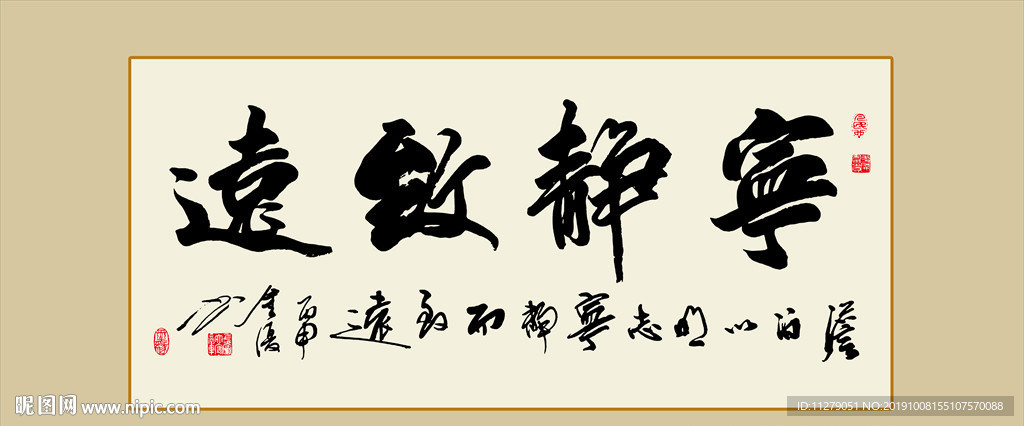 寧静致遠
澹泊以明志寧静而致遠 丙申 金優书
昵图网 www.nipic.com
ID:11279051 NO:20191008155107570088